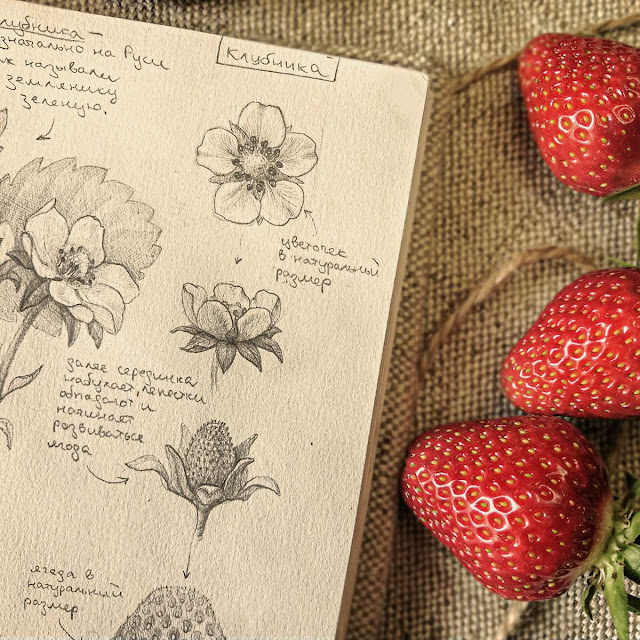 лубника –
значально на Руси
к называли
землянику
зеленую.
Клубника
цветочек
в натуральный
размер
далее серединка
набухает, лепестки
опадают и
начинает
развиваться
ягода
ягода в
натуральный
размер